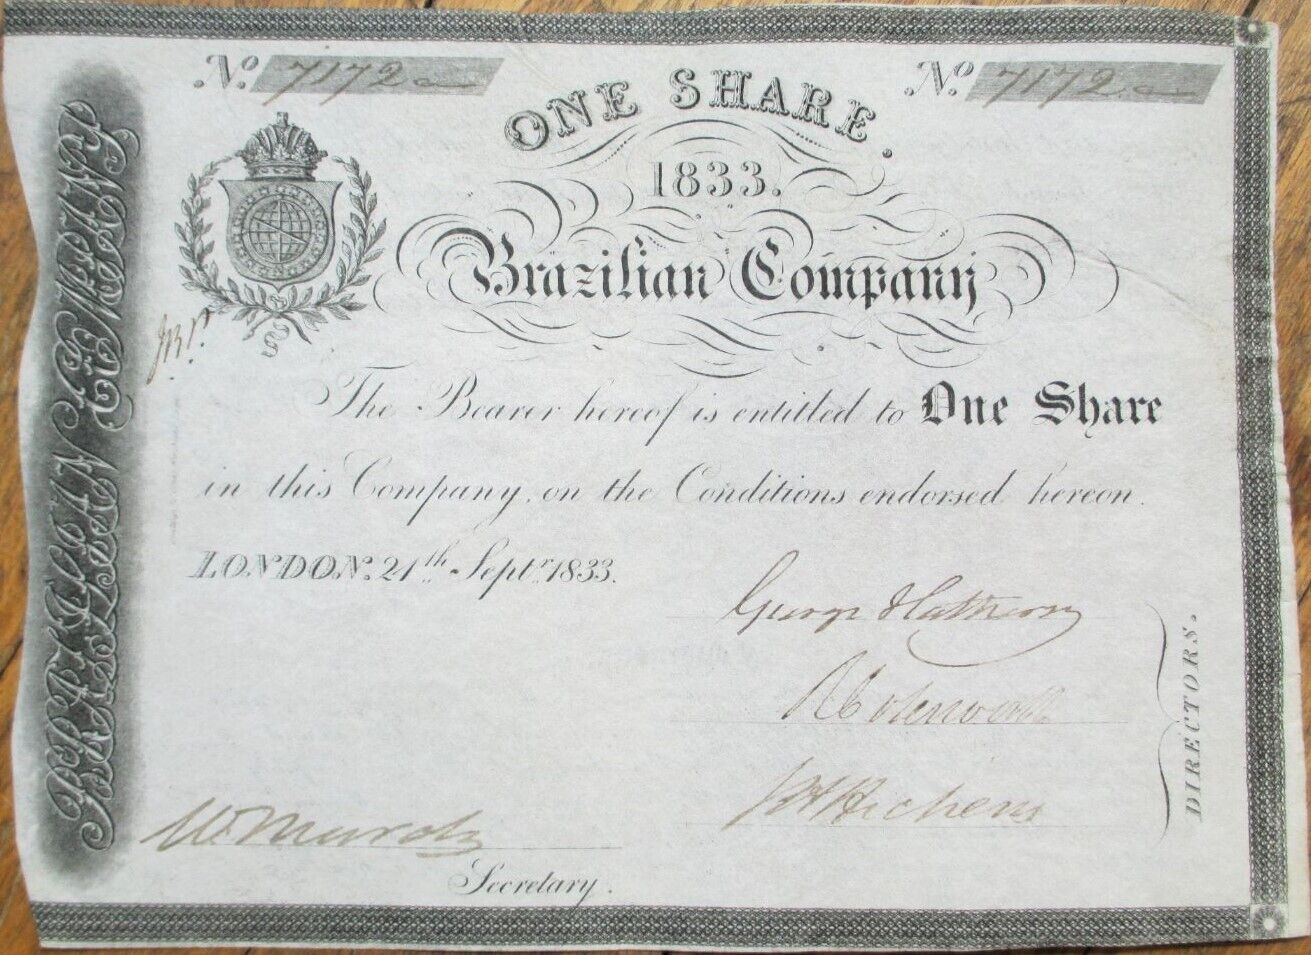 No. 7172
No. 7172
ONE SHARE.
1833.
Brazilian Company
The Bearer hereof is entitled to One Share
in this Company, on the Conditions endorsed hereon.
LONDON. 21th. Septr. 1833.
George
DIRECTORS.
Secretary.
BRAZILIAN COMPANY